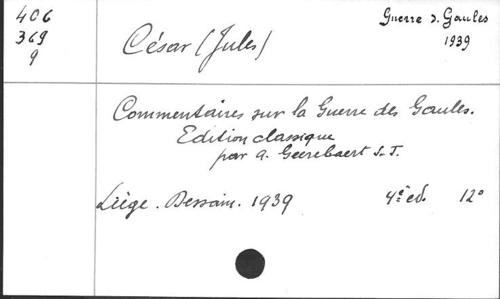 406
369
9
Guerre d. Gaules
1939
César (Jules)
Commentaires sur la Guerre des Gaules.
Edition classique
par A. Geerebaert S.J.
Liège. Dessain. 1939 4e ed. 12°